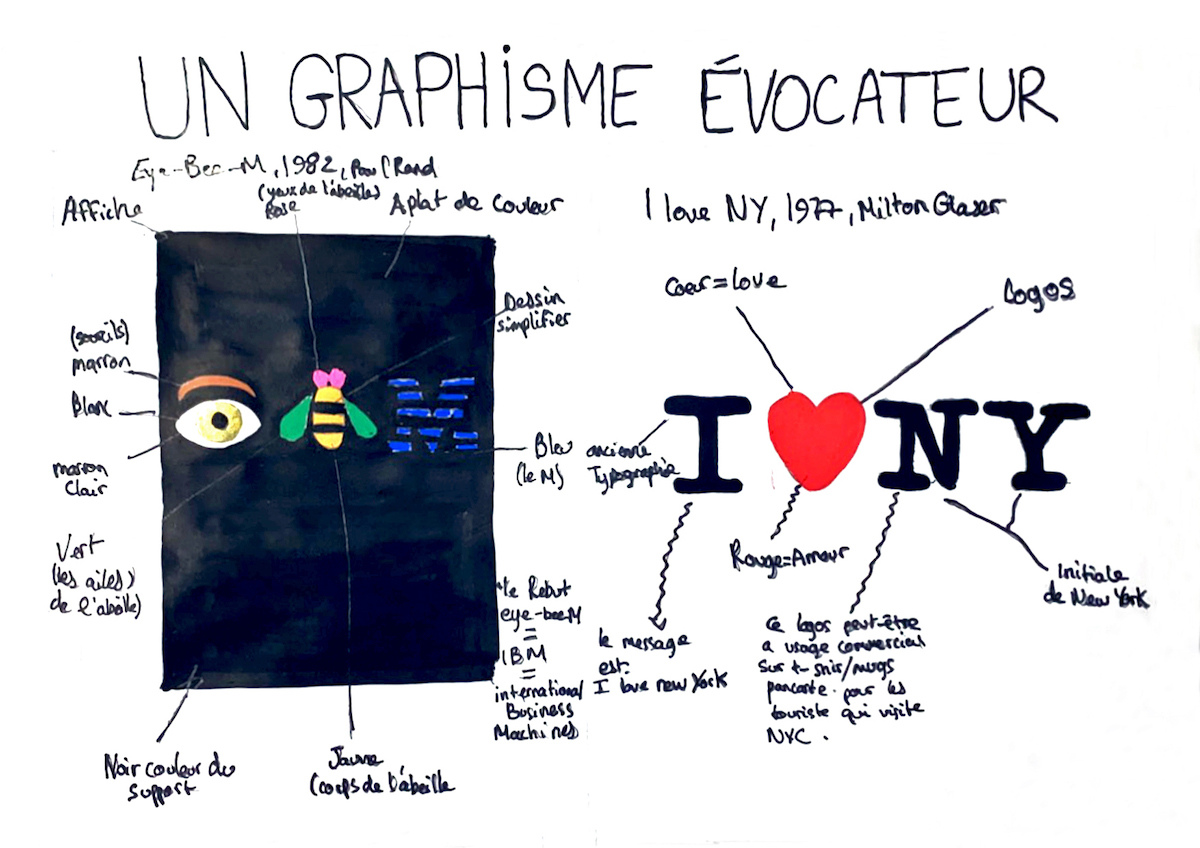 UN GRAPHISME ÉVOCATEUR
Eye-Bee-M, 1982, Paul Rand
Affiche
(yeux de l'abeille)
Rose
Aplat de couleur
Dessin
simplifier
(sourcils)
marron
Blanc
marron
Clair
Bleu
(le M)
Vert
(les ailes)
de l'abeille)
le Rebut
eye-bee M
=
IBM
=
international
Business
Machines
Noir couleur du
support
Jaune
(corps de l'abeille
M
I love NY, 1977, Milton Glaser
Coeur=love
Logos
ancienne
Typographie
I NY
Rouge=Amour
initiale
de New York
le message
est:
I love new York
Ce logos peut-être
a usage commercial
sur t-shir/mugs
pancarte. pour les
touriste qui visite
NYC.